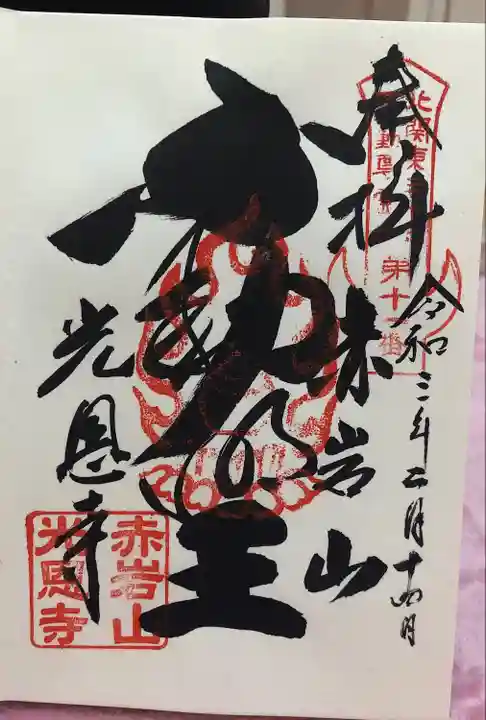 奉拝
令和三年二月十四日
赤岩山
不動明王
光恩寺
北関東
第十一番
赤岩山
光恩寺